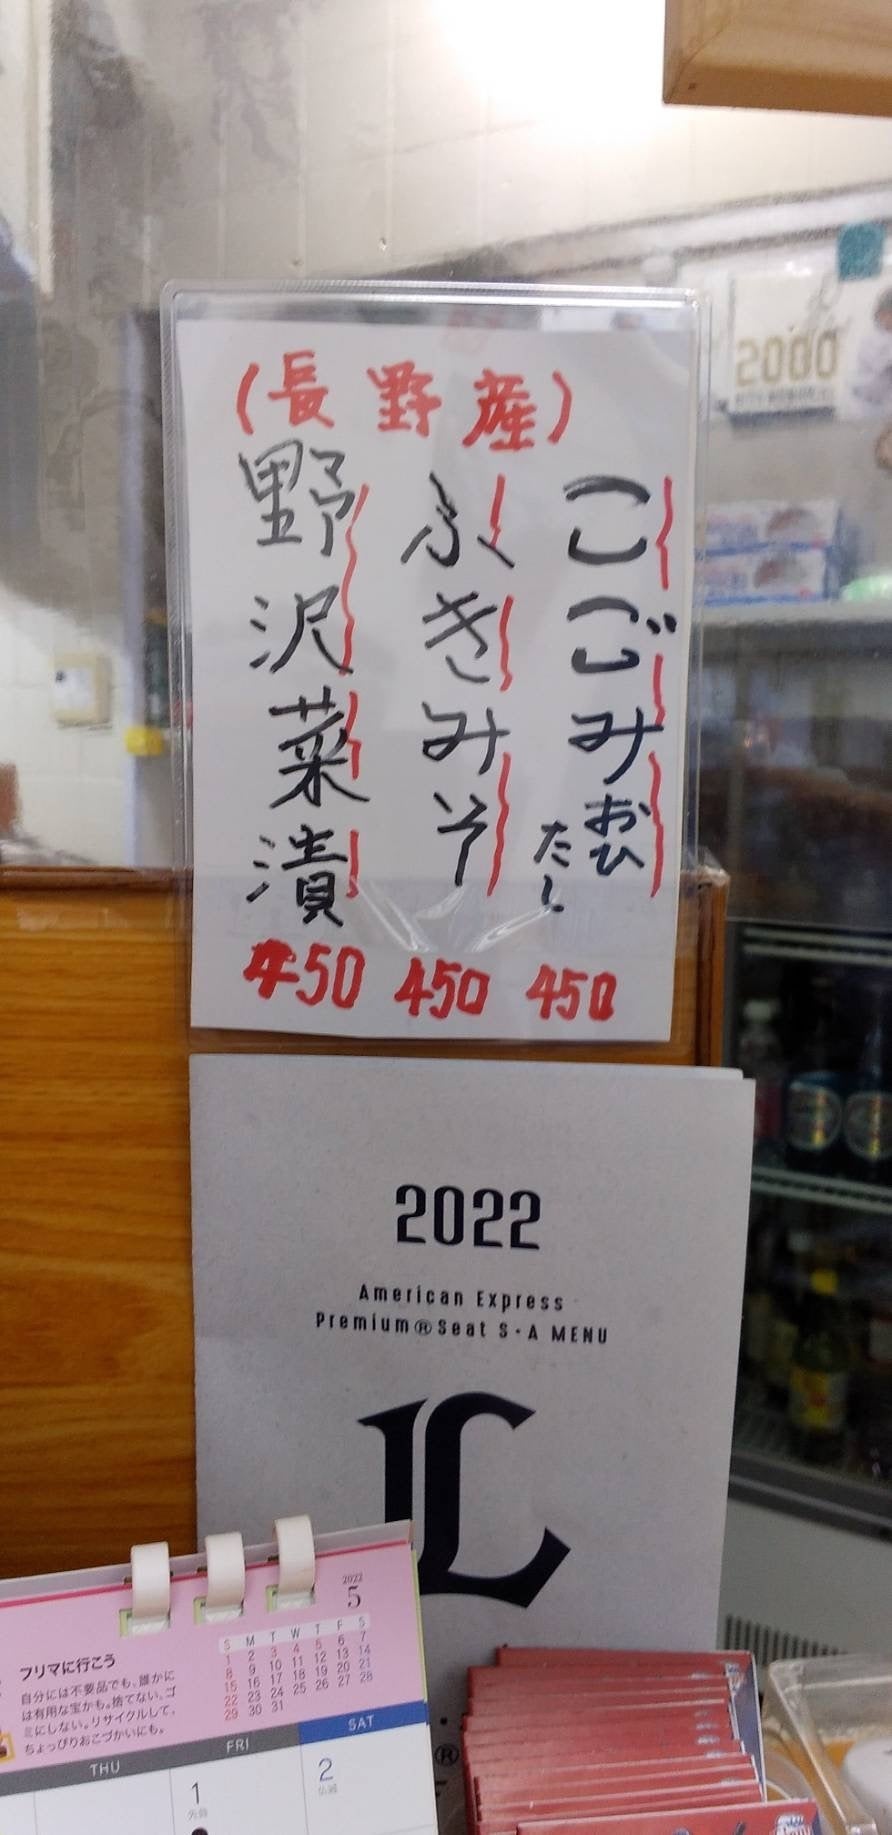 (長野産)
こごみおひたし
450
ふきみそ
450
野沢菜漬
450
2000
2022
American Express
Premium®Seat S・A MENU
L
2022
5
S M T W T F S
1 2 3 4 5 6 7
8 9 10 11 12 13 14
15 16 17 18 19 20 21
22 23 24 25 26 27 28
29 30 31
フリマに行こう
自分には不要品でも、誰かに
は有用な宝かも。捨てない、ゴ
ミにしない。リサイクルして、
ちょっぴりおこづかいにも。
THU FRI SAT
1 2
先勝
®